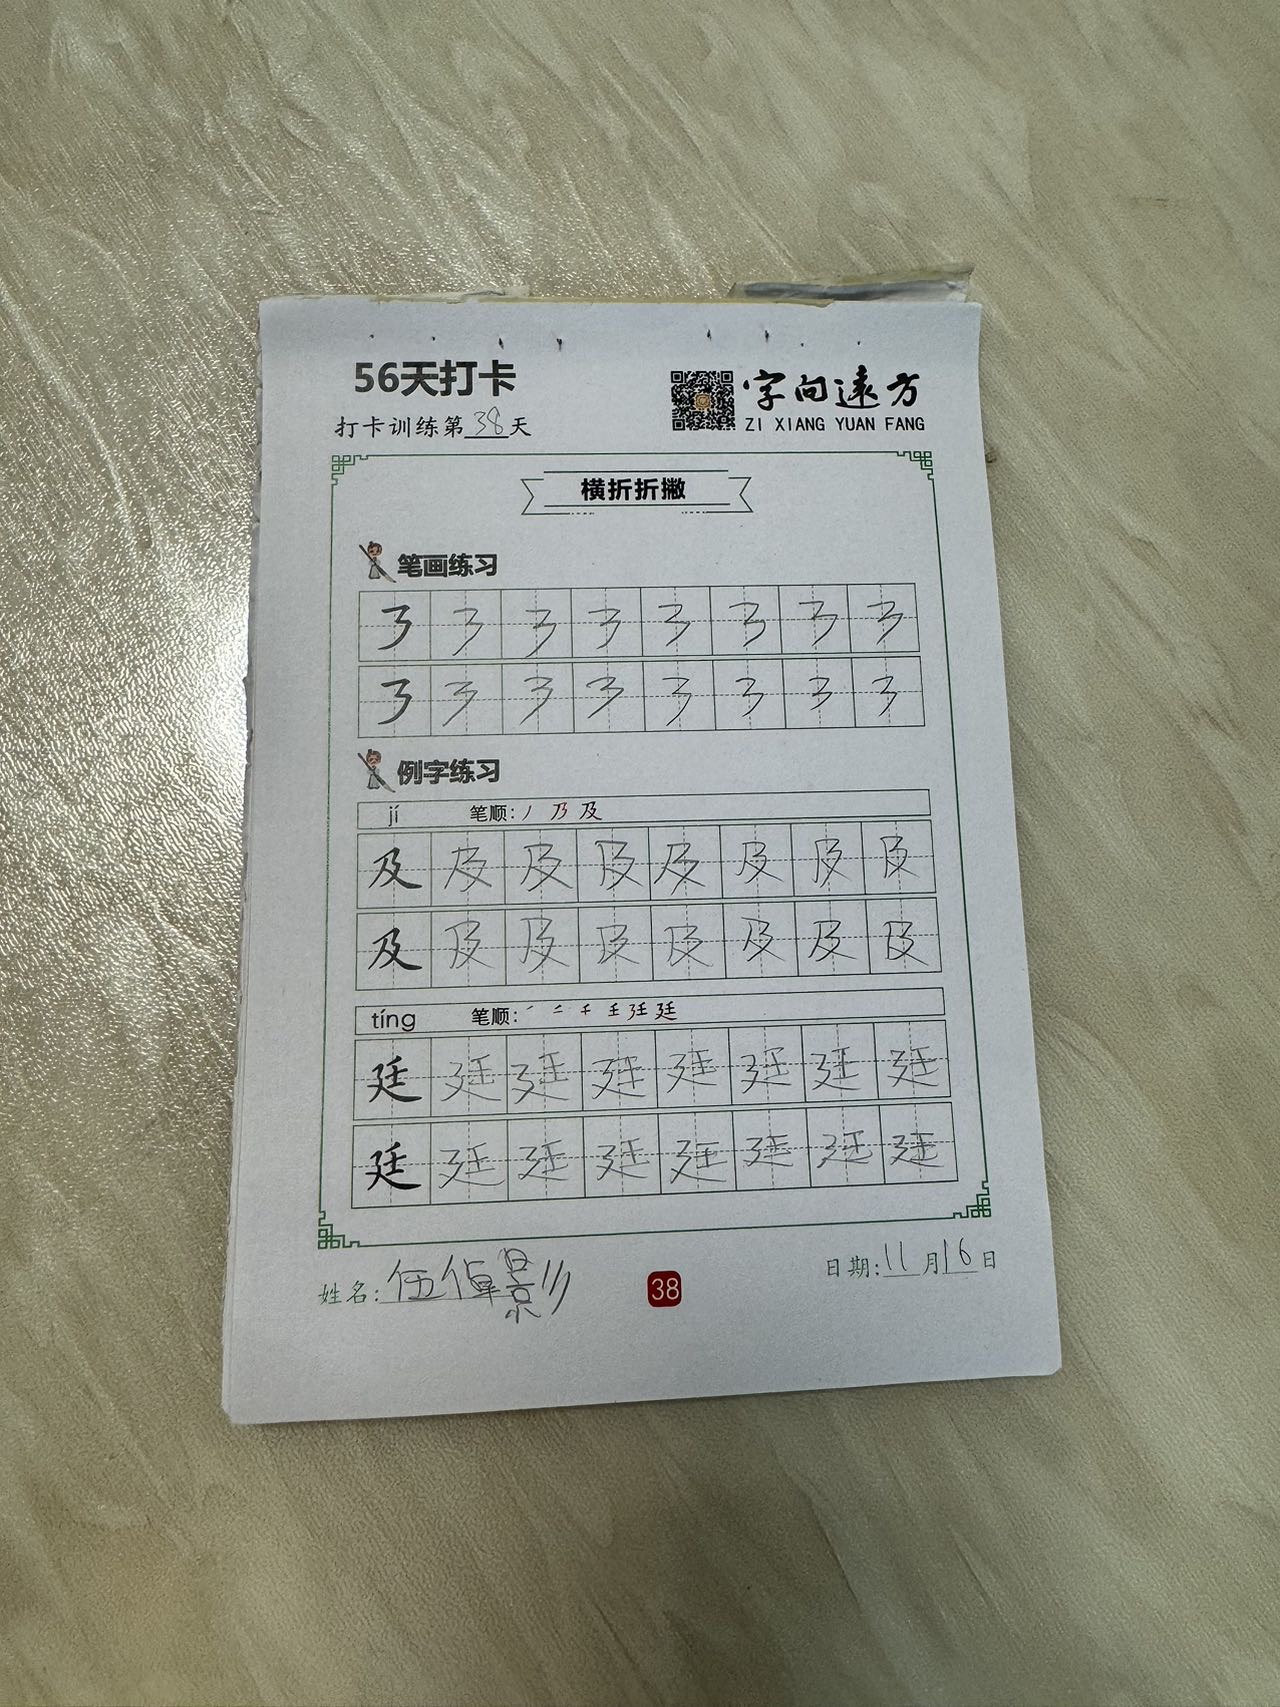 56天打卡
打卡训练第38天
字向远方
ZI XIANG YUAN FANG
横折折撇
笔画练习
㇋ ㇋ ㇋ ㇋ ㇋ ㇋ ㇋ ㇋
㇋ ㇋ ㇋ ㇋ ㇋ ㇋ ㇋ ㇋
例字练习
jí 笔顺: 丿 乃 及
及 及 及 及 及 及 及 及
及 及 及 及 及 及 及 及
tíng 笔顺:
廷 廷 廷 廷 廷 廷 廷 廷
廷 廷 廷 廷 廷 廷 廷 廷
姓名: 伍倬影
38
日期: 11月16日